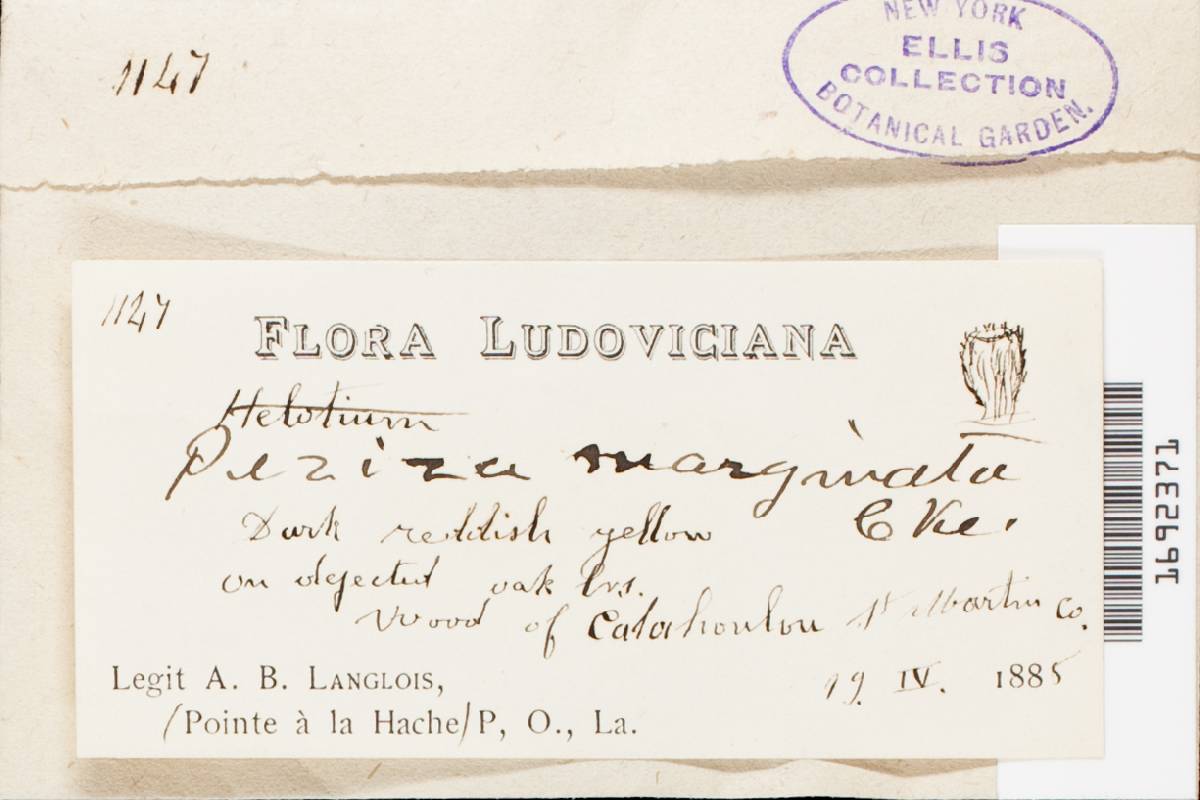 1147
NEW YORK
ELLIS
COLLECTION
BOTANICAL GARDEN.
1147
FLORA LUDOVICIANA
Helotium
Peziza marginata
Cke.
Dark reddish yellow
on dejected oak lvs.
Wood of Catahoulou St Martin Co.
Legit A. B. LANGLOIS,
19. IV. 1885
(Pointe à la Hache) P, O., La.
1692371